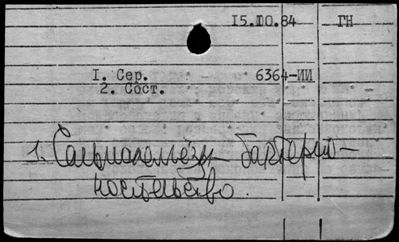 15.10.84 ГН
1. Сер. 6364-ИИ
2. Сост.
1. Сальмонеллёзы - бактерио-
носительство.